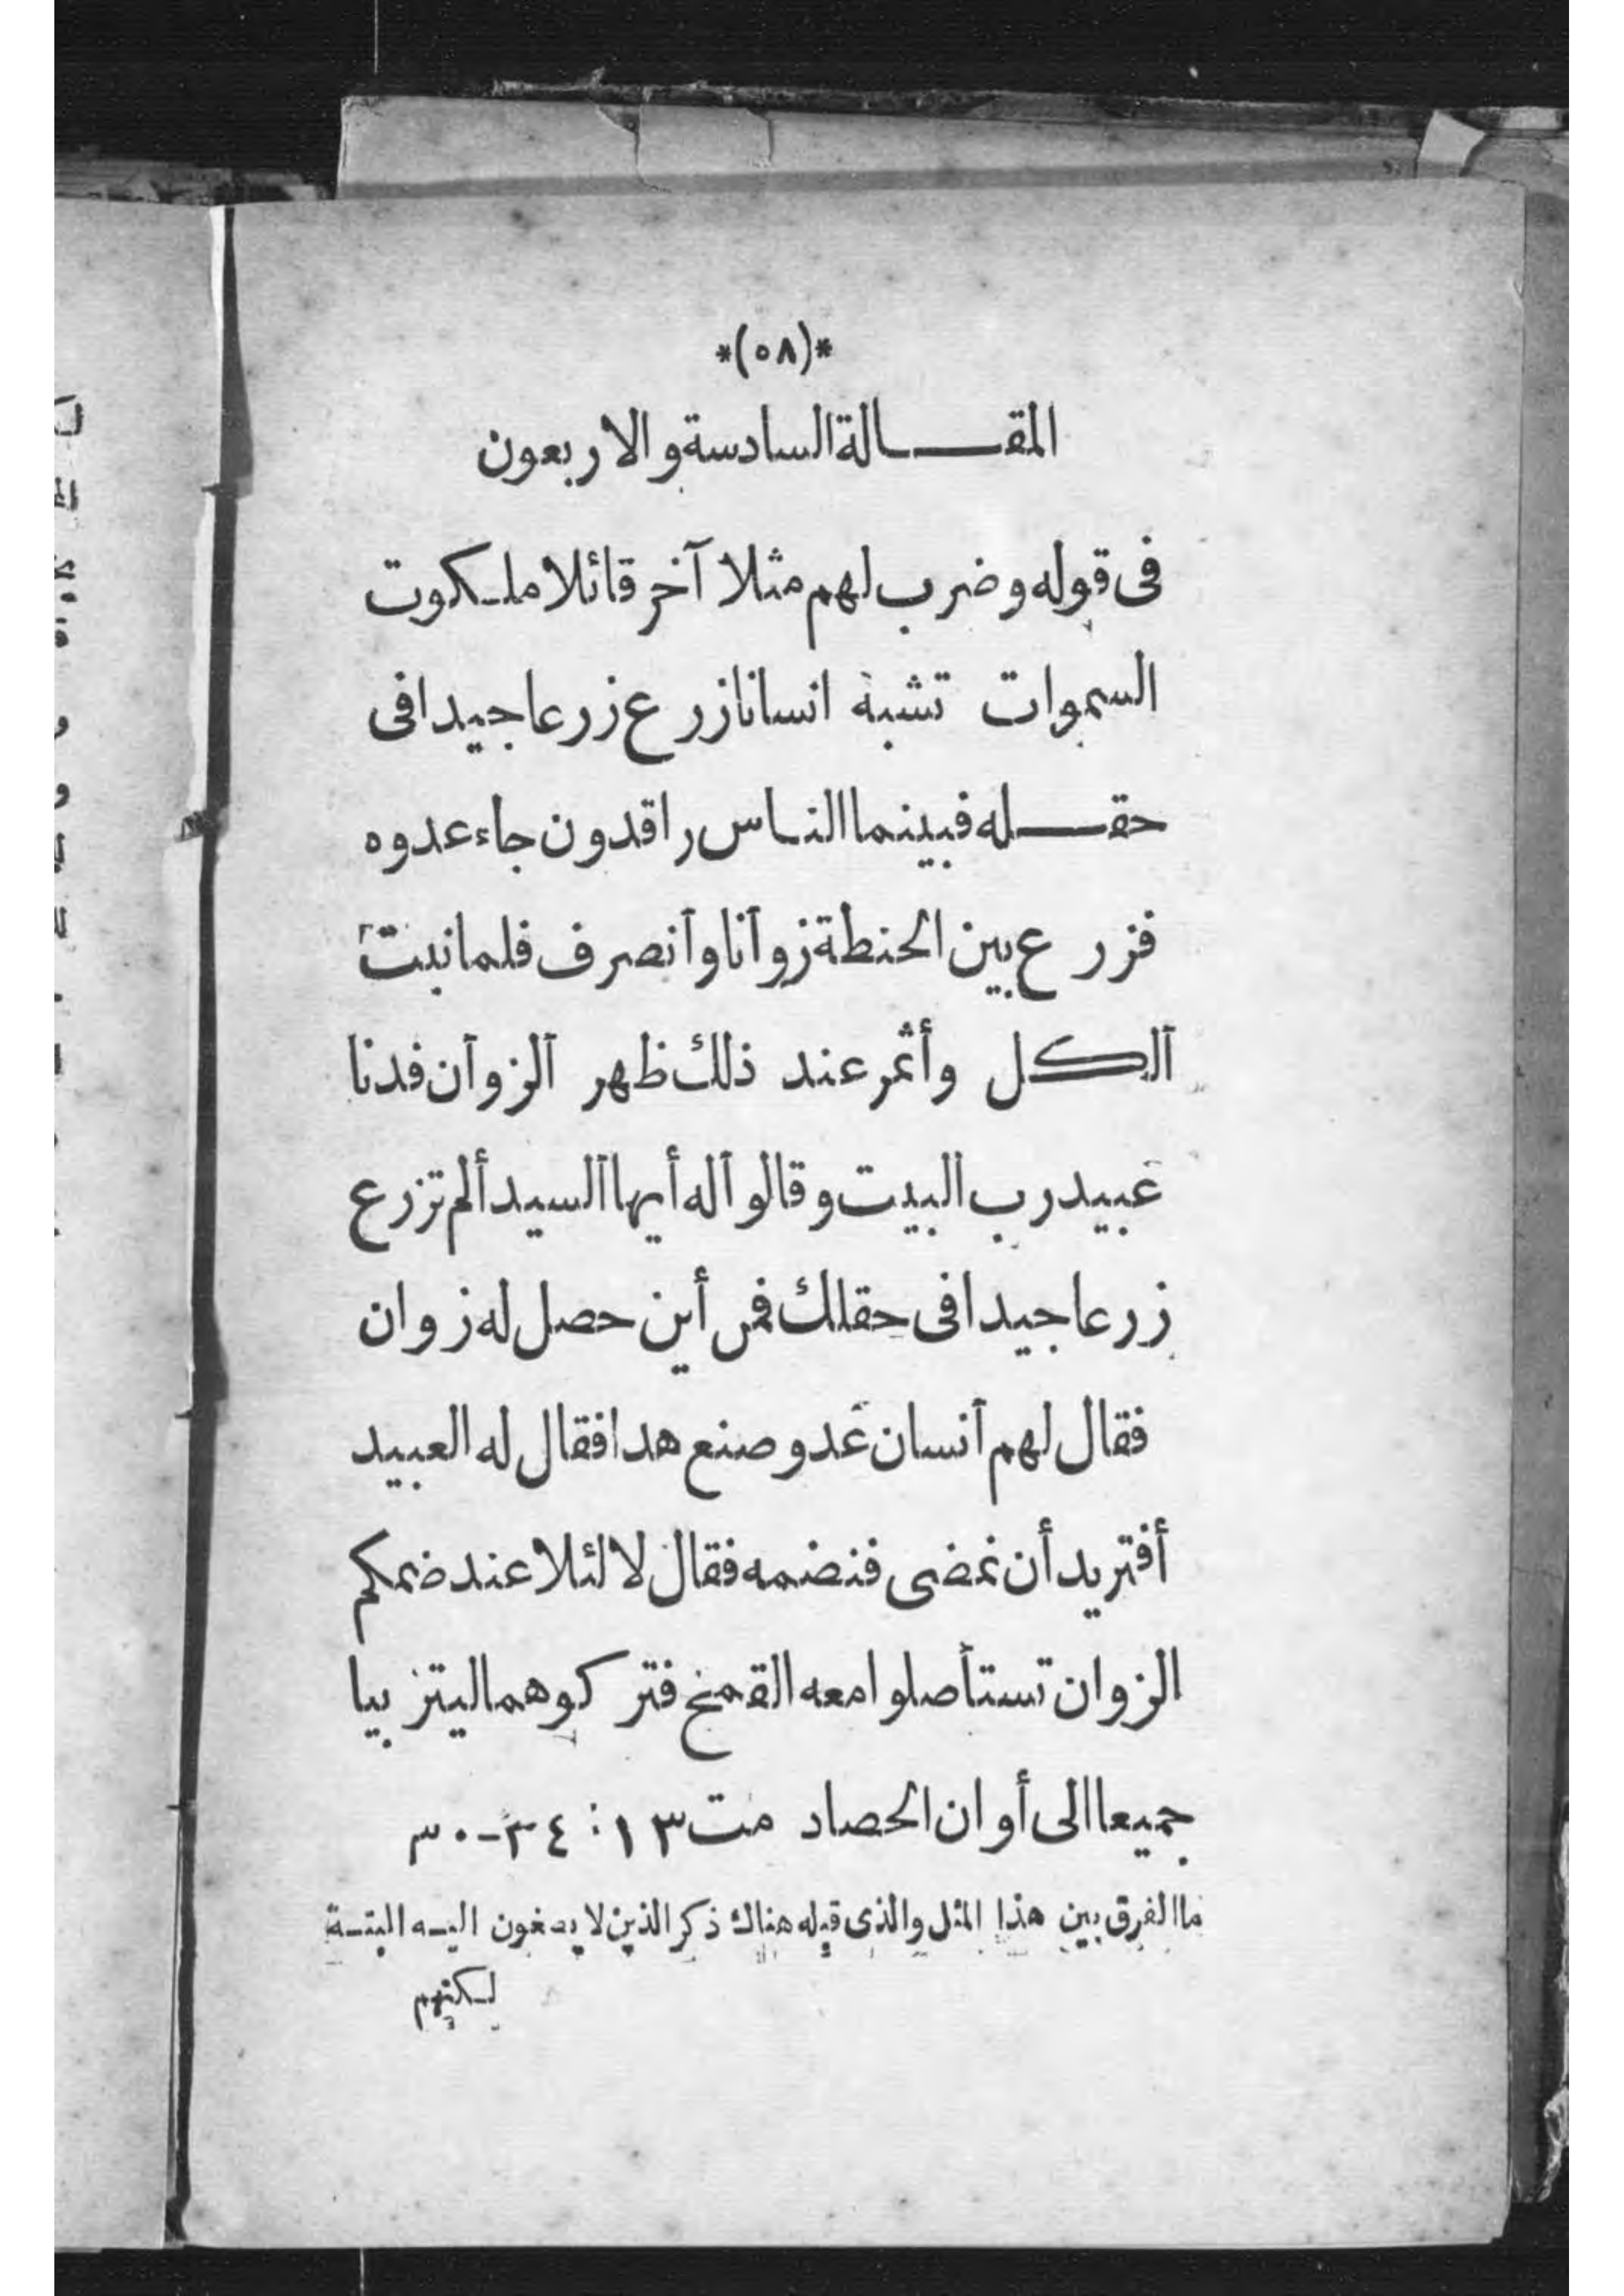 *(٥٨)*
المقـــالة السادسة والاربعون
فى قوله وضرب لهم مثلا آخر قائلا ملكوت
السموات تشبه انسانا زرع زرعا جيدا فى
حقـــله فبينما الناس راقدون جاء عدوه
فزرع بين الحنطة زوآنا وآنصرف فلما نبت
آلكل وأثمر عند ذلك ظهر آلزوآن فدنا
عبيد رب البيت وقالوآ له أيها آلسيد ألم تزرع
زرعا جيدا فى حقلك فمن أين حصل له زوان
فقال لهم آنسان عدو صنع هدا فقال له العبيد
أفتريد أن نمضى فنضمه فقال لا لئلا عند ضمكم
الزوان تستأصلوا معه القمح فتركوهما ليتزبيا
جميعا الى أوان الحصاد مت ١٣ : ٣٤-٣٠
ما الفرق بين هذا المثل والذى قبله هناك ذكر الذين لا يصغون اليـه البتـة
لكنهم